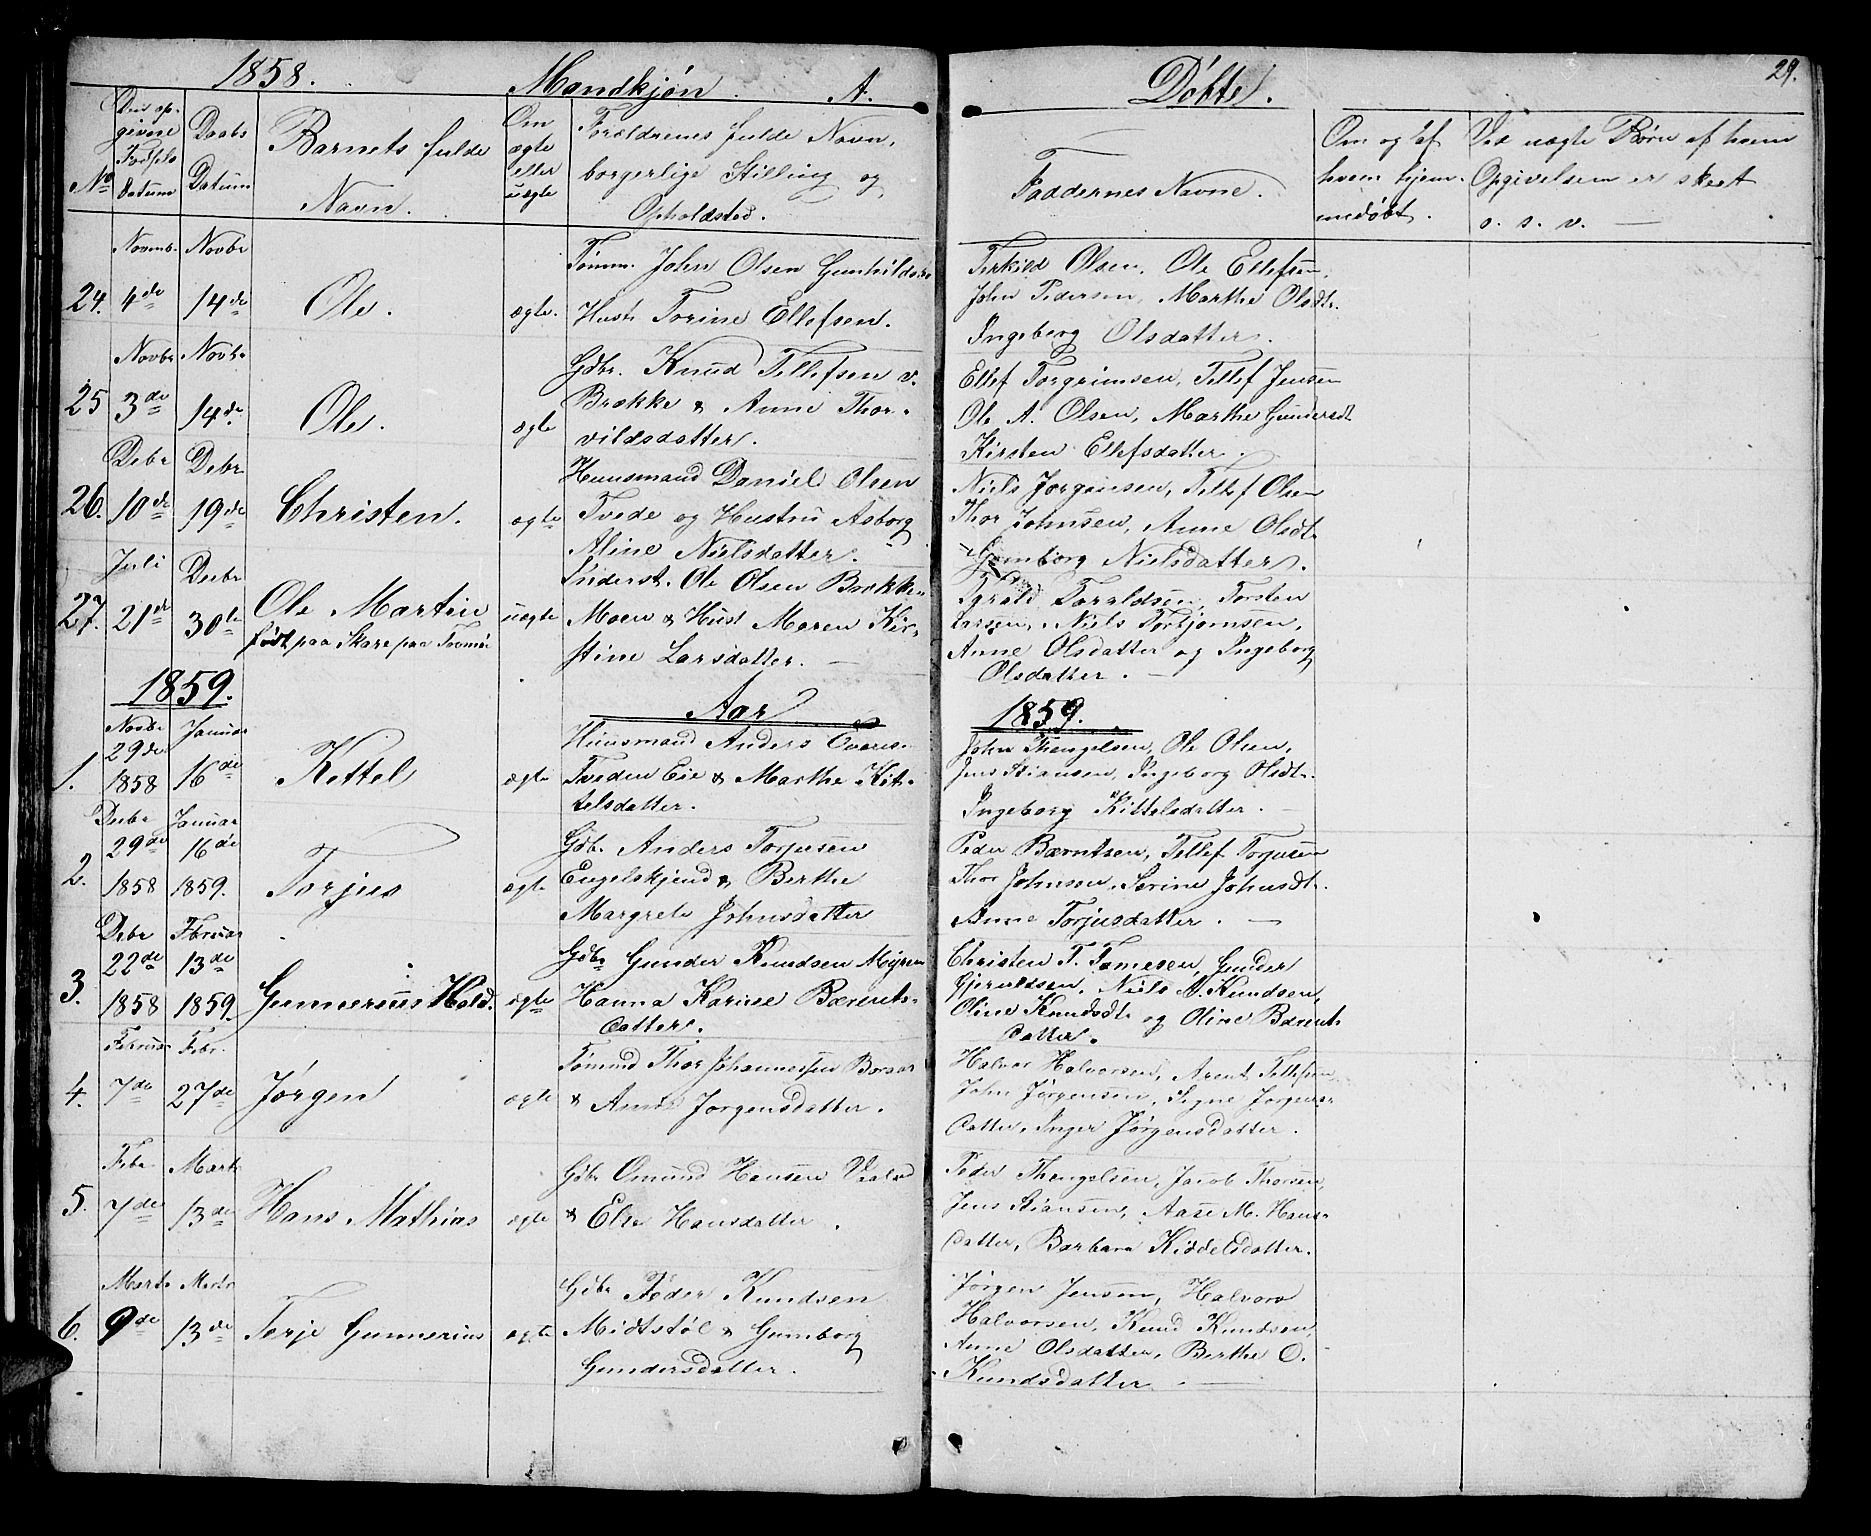 1858. Mandkjøn. A. Døbte. 29.
No
Den opgivne Fødsels Datum
Daabs Datum
Barnets fulde Navn.
Om ægte eller uægte
Forældrenes fulde Navn, borgerlige Stilling og Opholdsted.
Faddernes Navne.
Om og af hvem hjemmedøbt.
Ved uægte Børn af hvem Opgivelsen er skeet o. s. v. —
Novemb. Novbr
24. 4de 14de Ole. ægte.
Tømm. John Olsen
Hust. Torine Ellefsen.
Terkild Olsen, Ole Ellefsen,
John Pedersen, Marthe Olsdt.
Ingeborg Olsdatter.
Novbr Novbr
25 3de 14de. Ole. ægte
Gdbr. Knud Tellefsen v.
Brække & Anne Thor-
vildsdatter.
Ellef Torgrimsen, Tellef Jensen
Ole A. Olsen, Marthe Gundersdt
Kirsten Ellefsdatter.
Debr Debr
26. 10de 19de Christen. ægte
Huusmand Daniel Olsen
Tvede og Hustru Asborg
Aline Nielsdatter.
Niels Jørgensen, Tellef Olsen
Thor Johnsen, Anne Olsdt.
Gumborg Nielsdatter.
Juli Decbr
27. 21de 30te Ole Martin uægte
født paa Skare paa Tromøe
Inderst. Ole Olsen Brække-
Moen & Hust Maren Kir-
stine Larsdatter. —
Taraldsen, Torsten
Larsen, Niels Torbjørnsen,
Anne Olsdatter og Ingeborg
Olsdatter. —
1859. Aar 1859.
Novbr Januar
29de
1. 1858 16de Kettel ægte
Huusmand Anders
Tveden Eie & Marthe Kit-
telsdatter.
John Thengelsen, Ole Olsen,
Jens Stiansen, Ingeborg Olsdt.
Ingeborg Kittelsdatter. —
Decbr Januar
29de 16de
2. 1858 1859. Torjus ægte
Gdbr Anders Torjusen
Engelskjend & Berthe
Margrete Johnsdatter
Peder Bærntsen, Tellef Torjusen
Thor Johnsen, Serine Johnsdt.
Anne Torjusdatter. —
Debr Februar
22de 13de
3. 1858 1859. Gunnerius Hold. ægte
Gdbr Gunder Knudsen Myren
Hanna Karine Bærents-
datter.
Christen T. Tomesen, Gunder
Gjeruldsen, Niels A. Knudsen,
Oline Knudsdt. og Oline Bærents
datter.
Februar Febr.
4. 7de 27de Jørgen ægte
Tømmd Thor Johannessen
& Anne Jørgensdatter.
Halvor Halvorsen, Arent Tellefsen
John Jørgensen, Signe Jørgens-
datter, Inger Jørgensdatter.
Febr Marts
5. 7de 13de Hans Mathias ægte
Gdbr Omund Hansen
& Else Hansdatter.
Peder Thengelsen, Jacob Thorsen,
Jens Stiansen, Aase M. Hans-
datter, Barbara Kiddelsdatter.
Marts Marts
6. 9de 13de Terje Gunnerius ægte
Gdbr Peder Knudsen
Midtstøl & Gumborg
Gundersdatter.
Jørgen Jensen, Halvord
Halvorsen, Knud Knudsen,
Anne Olsdatter, Berthe O.
Knudsdatter. —